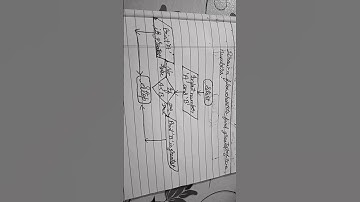 Draw a flow chart to find greatest of two
numbers.
Start
Input number
'A' and 'B'
if
No
Yes
Print 'B'
is greater
Print 'A' is greater
Stop